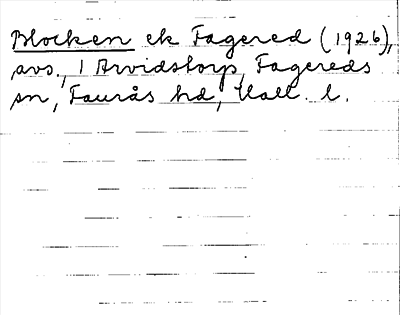 Blocken ek Fagered (1926),
avs., 1 Arvidstorp, Fagereds
sn, Faurås hd, Hall. l.